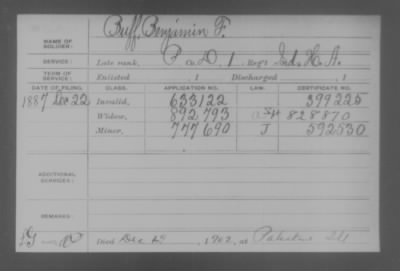 Buff, Benjamin F.
NAME OF SOLDIER:
SERVICE: Late rank, P Co. D, 1 Reg't Ind. H. A.
TERM OF SERVICE: Enlisted , 1 Discharged , 1
DATE OF FILING. CLASS. APPLICATION NO. LAW. CERTIFICATE NO.
1887 Dec 22 Invalid, 633122 399225
Widow, 892793 828870
Minor, 777690 J 592530
ADDITIONAL SERVICES:
REMARKS:
Died Dec , 1902, at Palestine Ill